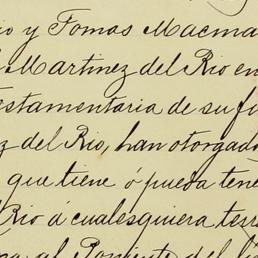 io y Tomas Macma
Martinez del Rio en
testamentaria de su fi
z del Rio, han otorgado
que tiene ó pueda tene
Rio á cualesquiera terr
al Poniente del